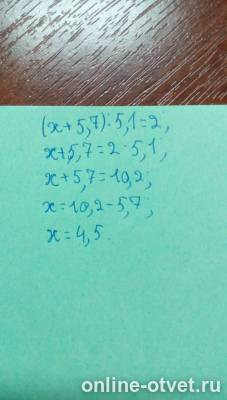 (x+5,7):5,1=2;
x+5,7=2·5,1;
x+5,7=10,2;
x=10,2-5,7;
x=4,5.
online-otvet.ru